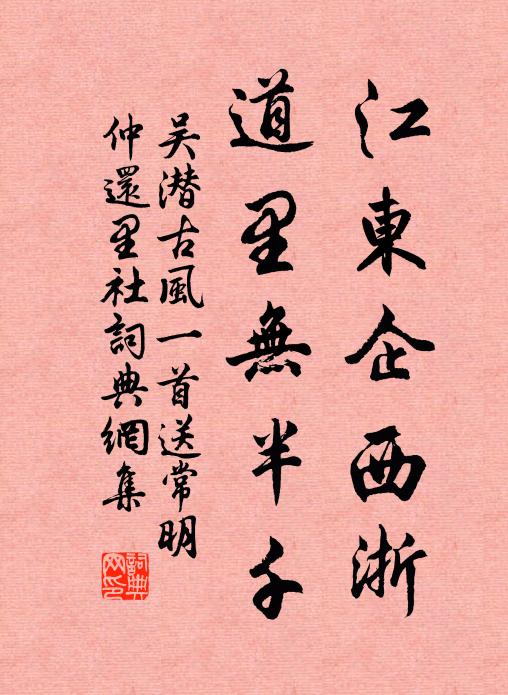 江東企西浙
道里無半千
吳潛古風一首送常明
仲還里社詞典網集
詞典網印